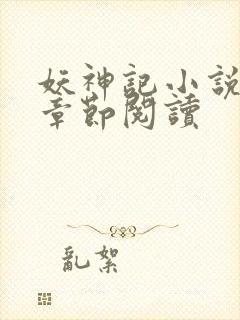 妖神記小說
章節閱讀
亂絮